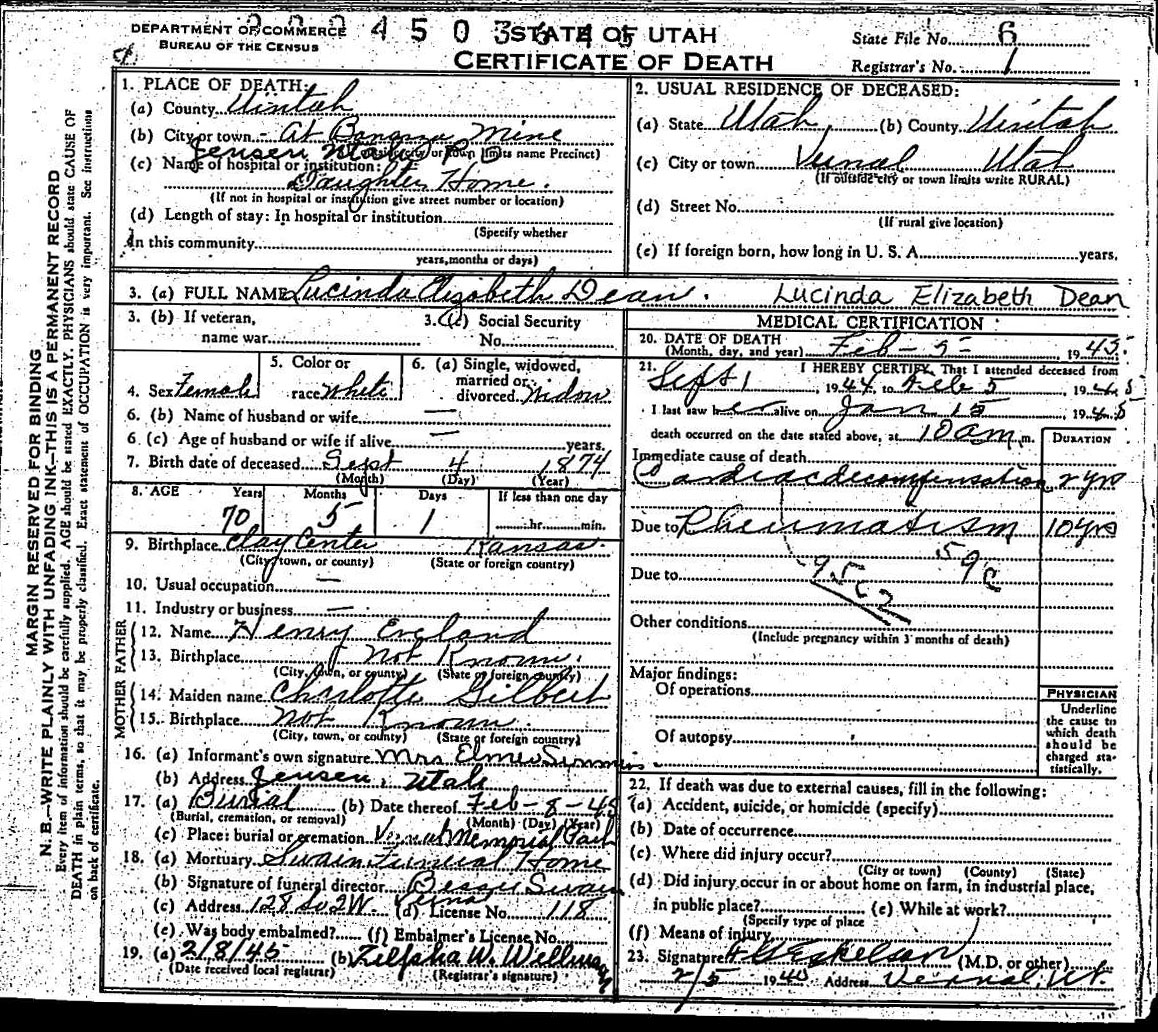 DEPARTMENT OF COMMERCE
BUREAU OF THE CENSUS
STATE OF UTAH
CERTIFICATE OF DEATH
State File No. 6
Registrar's No. 1
MARGIN RESERVED FOR BINDING
N. B.—WRITE PLAINLY WITH UNFADING INK—THIS IS A PERMANENT RECORD
Every item of information should be carefully supplied. AGE should be stated EXACTLY. PHYSICIANS should state CAUSE OF
DEATH in plain terms, so that it may be properly classified. Exact statement of OCCUPATION is very important. See instructions
on back of certificate.
1. PLACE OF DEATH:
(a) County Uintah
(b) City or town - At Bonanza Mine
Jensen Utah
(If outside city or town limits name Precinct)
(c) Name of hospital or institution:
Daughter Home.
(If not in hospital or institution give street number or location)
(d) Length of stay: In hospital or institution
(Specify whether
In this community
years, months or days)
2. USUAL RESIDENCE OF DECEASED:
(a) State Utah, (b) County Uintah
(c) City or town Vernal Utah
(If outside city or town limits write RURAL)
(d) Street No.
(If rural give location)
(e) If foreign born, how long in U. S. A. years.
3. (a) FULL NAME Lucinda Elizabeth Dean. Lucinda Elizabeth Dean
3. (b) If veteran,
name war
3. (c) Social Security
No.
4. Sex Female
5. Color or
race White
6. (a) Single, widowed,
married or
divorced Widow
6. (b) Name of husband or wife —
6. (c) Age of husband or wife if alive — years.
7. Birth date of deceased Sept 4 1874
(Month) (Day) (Year)
8. AGE Years Months Days If less than one day
70 5 1 hr. min.
9. Birthplace Clay Center Kansas.
(City, town, or county) (State or foreign country)
10. Usual occupation —
11. Industry or business —
FATHER
12. Name Henry England
13. Birthplace Not Known.
(City, town, or county) (State or foreign country)
MOTHER
14. Maiden name Charlotte Gilbert
15. Birthplace Not Known.
(City, town, or county) (State or foreign country)
16. (a) Informant's own signature Mrs. Elmer Simmons
(b) Address Jensen, Utah
17. (a) Burial (b) Date thereof Feb-8-45
(Burial, cremation, or removal) (Month) (Day) (Year)
(c) Place: burial or cremation Vernal Memorial Park
18. (a) Mortuary Swain Funeral Home
(b) Signature of funeral director Swain
(c) Address 128 So 2W. Vernal (d) License No. 118
(e) Was body embalmed? (f) Embalmer's License No.
19. (a) 2/8/45 (b) Zilpha W.
(Date received local registrar) (Registrar's signature)
MEDICAL CERTIFICATION
20. DATE OF DEATH
(Month, day, and year) Feb - 5 - 1945
21. I HEREBY CERTIFY, That I attended deceased from
Sept 1, 1944 to Feb 5, 1945
I last saw her alive on Jan 15, 1945
death occurred on the date stated above, at 10 am m.
DURATION
Immediate cause of death
Cardiac decompensation 2 yrs
Due to Rheumatism 10 yrs
Due to
Other conditions
(Include pregnancy within 3 months of death)
Major findings:
Of operations
Of autopsy
PHYSICIAN
Underline
the cause to
which death
should be
charged sta-
tistically.
22. If death was due to external causes, fill in the following:
(a) Accident, suicide, or homicide (specify)
(b) Date of occurrence
(c) Where did injury occur?
(City or town) (County) (State)
(d) Did injury occur in or about home on farm, in industrial place,
in public place? (e) While at work?
(Specify type of place)
(f) Means of injury
23. Signature Eskelson (M.D. or other)
2/5 1940 Address Vernal, Ut.